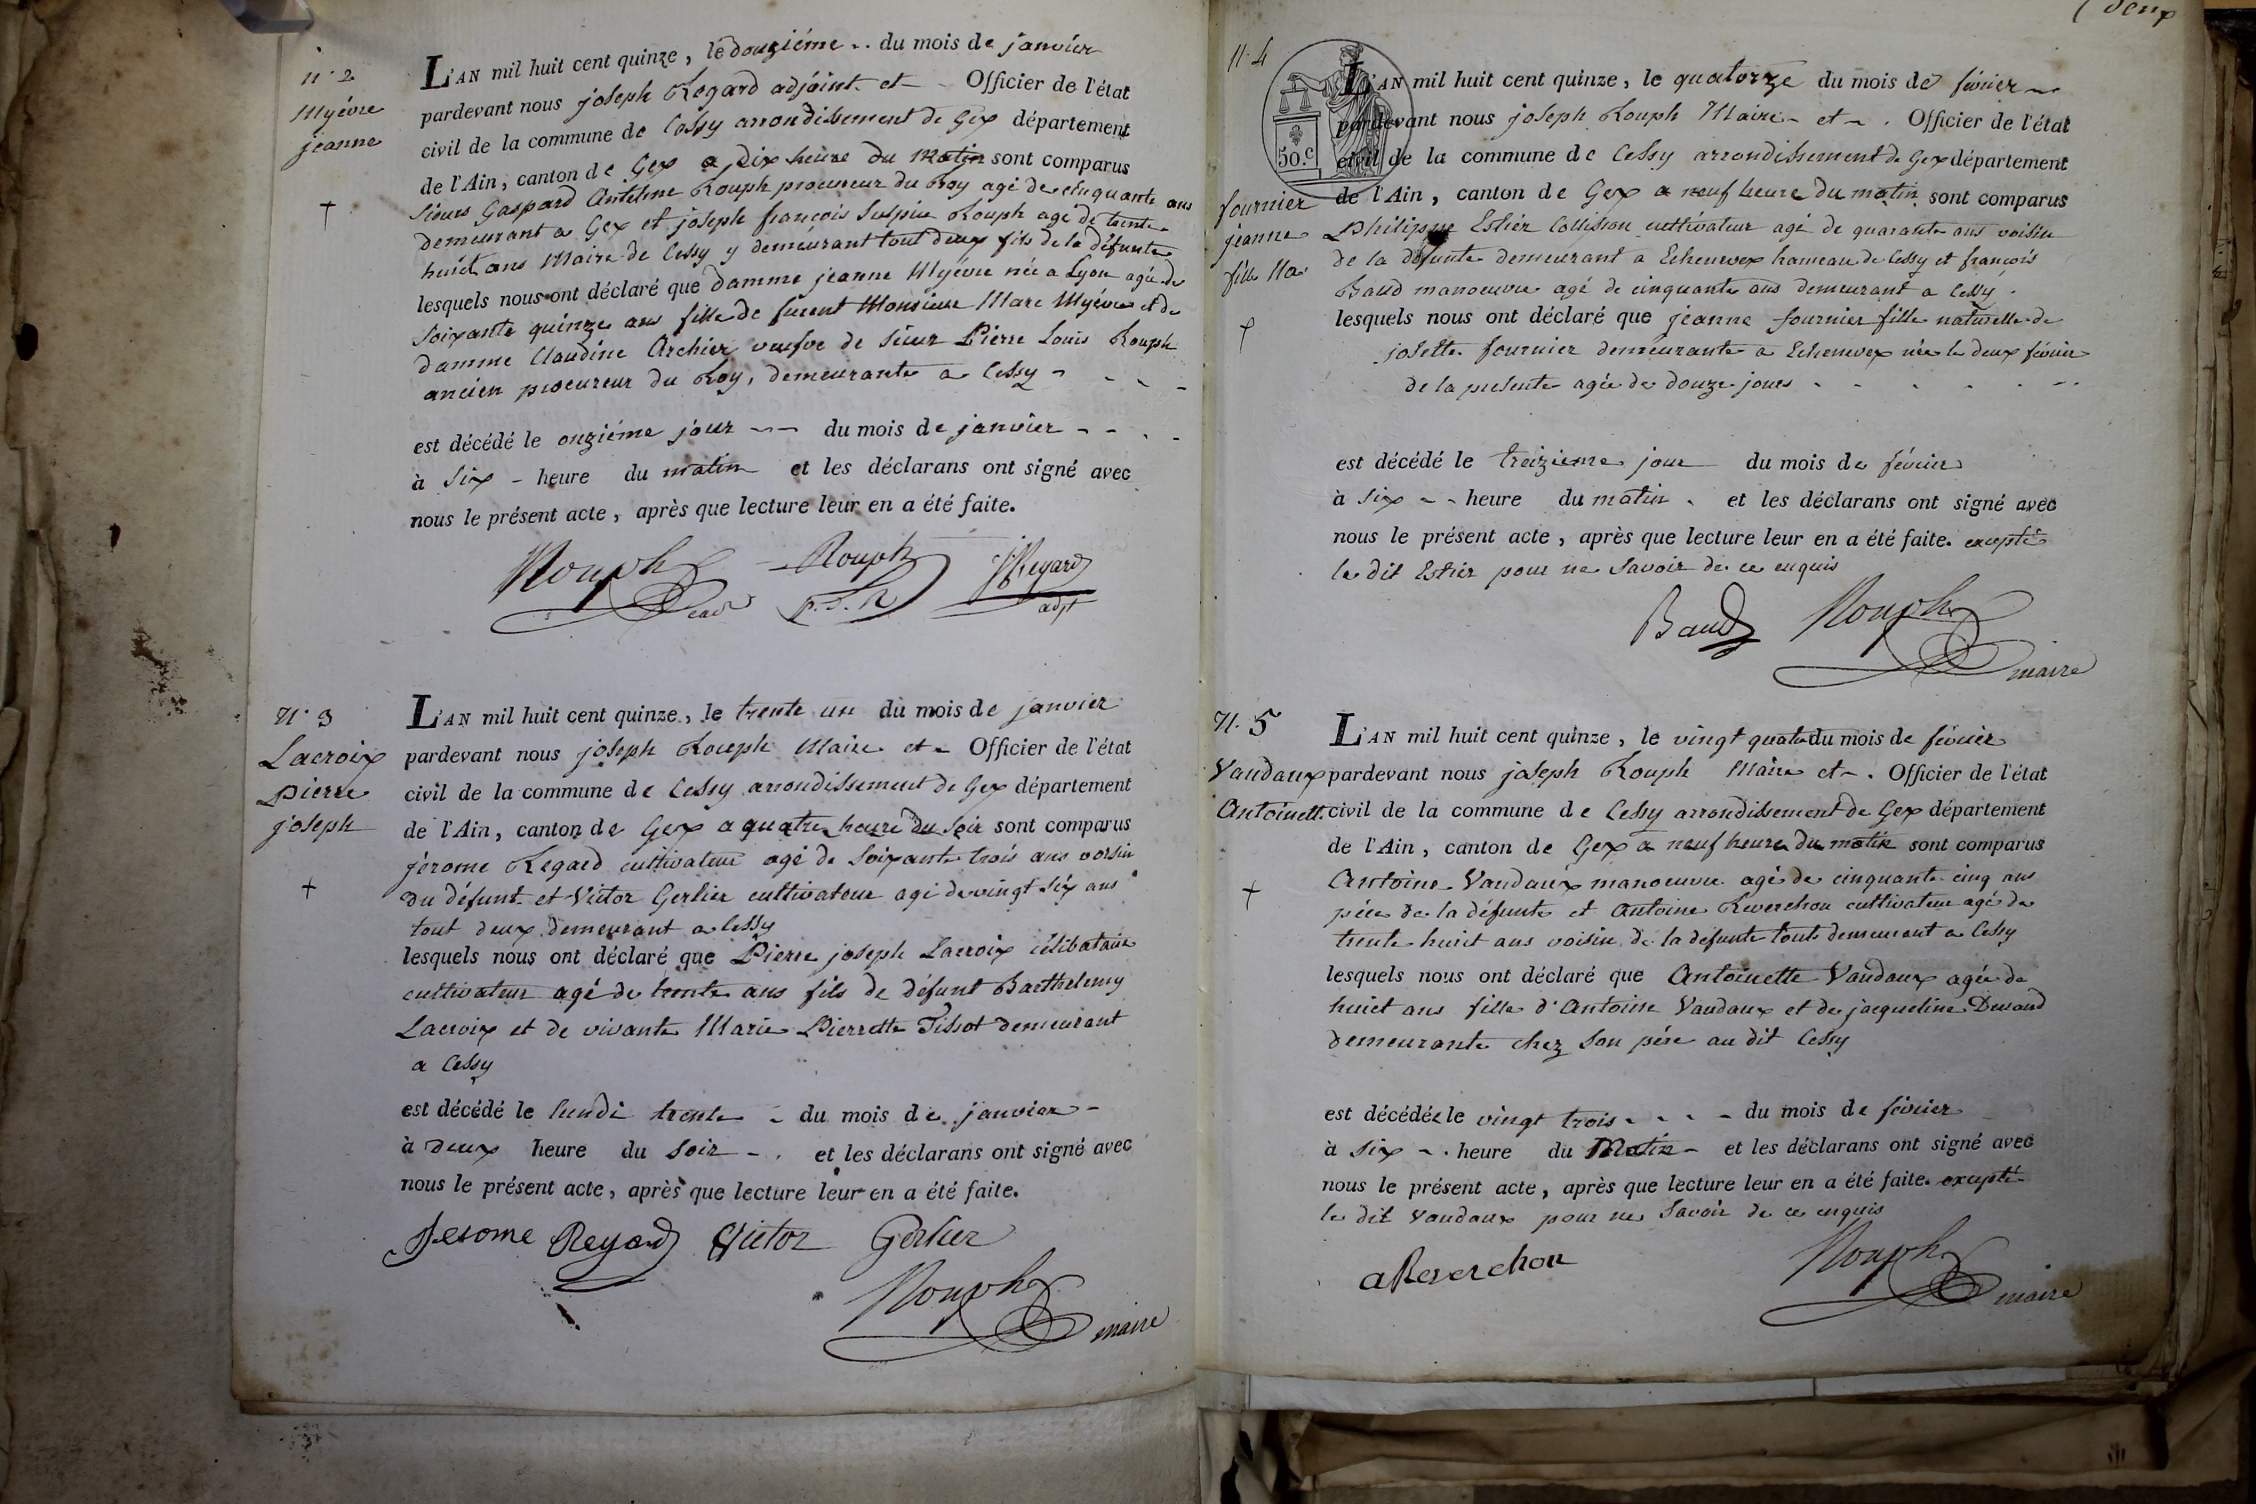 n.° 2
Myévre
jeanne
L'AN mil huit cent quinze, le douziéme du mois de janvier
pardevant nous joseph Regard adjoint et Officier de l'état
civil de la commune de Cessy arrondissement de Gex département
de l'Ain, canton de Gex a dix heure du matin sont comparus
sieurs Gaspard Antelme Rouph procureur du Roy agé de cinquante ans
demeurant a Gex et joseph françois Sulpice Rouph agé de trente
huiet ans Maire de Cessy y demeurant tout deux fils de la défunte
lesquels nous ont déclaré que damme jeanne Myévre née a Lyon agée de
soixante quinze ans fille de furent Monsieur Marc Myévre et de
damme Claudine Archier veufve de sieur Pierre Louis Rouph
ancien procureur du Roy, demeurante a Cessy
est décédé le onziéme jour du mois de janvier
à six heure du matin et les déclarans ont signé avec
nous le présent acte, après que lecture leur en a été faite.
Rouph Rouph J Regard
p. d. R adjt
n.° 3
Lacroix
pierre
joseph
L'AN mil huit cent quinze, le trente un du mois de janvier
pardevant nous joseph Rouph Maire et Officier de l'état
civil de la commune de Cessy arrondissement de Gex département
de l'Ain, canton de Gex a quatre heure du soir sont comparus
jérome Regard cultivateur agé de soixante trois ans voisin
du défunt et Victor Gerlier cultivateur agé de vingt six ans
tout deux demeurant a Cessy
lesquels nous ont déclaré que Pierre joseph Lacroix célibataire
cultivateur agé de trente ans fils de défunt Barthelemy
Lacroix et de vivante Marie Pierrette Tissot demeurant
a Cessy
est décédé le lundi trente du mois de janvier
à deux heure du soir et les déclarans ont signé avec
nous le présent acte, après que lecture leur en a été faite.
Jerome Regard Victor Gerlier
Rouph maire
deux
n. 4
50.c
fournier
jeanne
fille Na.
L'AN mil huit cent quinze, le quatorze du mois de février
pardevant nous joseph Rouph Maire et Officier de l'état
civil de la commune de Cessy arrondissement de Gex département
de l'Ain, canton de Gex a neuf heure du matin sont comparus
Philippe Estier cultivateur agé de quarante ans voisin
de la défunte demeurant a Echenevex hameau de Cessy et françois
Baud manoeuvre agé de cinquante ans demeurant a Cessy.
lesquels nous ont déclaré que jeanne fournier fille naturelle de
josette fournier demeurante a Echenevex née le deux février
de la presente agée de douze jours
est décédé le treizieme jour du mois de février
à six heure du matin et les déclarans ont signé avec
nous le présent acte, après que lecture leur en a été faite. excepté
le dit Estier pour ne savoir de ce enquis
Baud Rouph maire
n. 5
Vaudaux
Antoinett.
L'AN mil huit cent quinze, le vingt quatre du mois de février
pardevant nous joseph Rouph Maire et Officier de l'état
civil de la commune de Cessy arrondissement de Gex département
de l'Ain, canton de Gex a neuf heure du matin sont comparus
Antoine Vaudaux manoeuvre agé de cinquante cinq ans
pére de la défunte et Antoine Reverchon cultivateur agé de
trente huiet ans voisin de la défunte touts demeurant a Cessy
lesquels nous ont déclaré que Antoinette Vaudaux agée de
huiet ans fille d'Antoine Vaudaux et de jacqueline Durand
demeurante chez son pére au dit Cessy
est décédée le vingt trois du mois de février
à six heure du Matin et les déclarans ont signé avec
nous le présent acte, après que lecture leur en a été faite. excepté
le dit Vaudaux pour ne savoir de ce enquis
a Reverchon Rouph maire